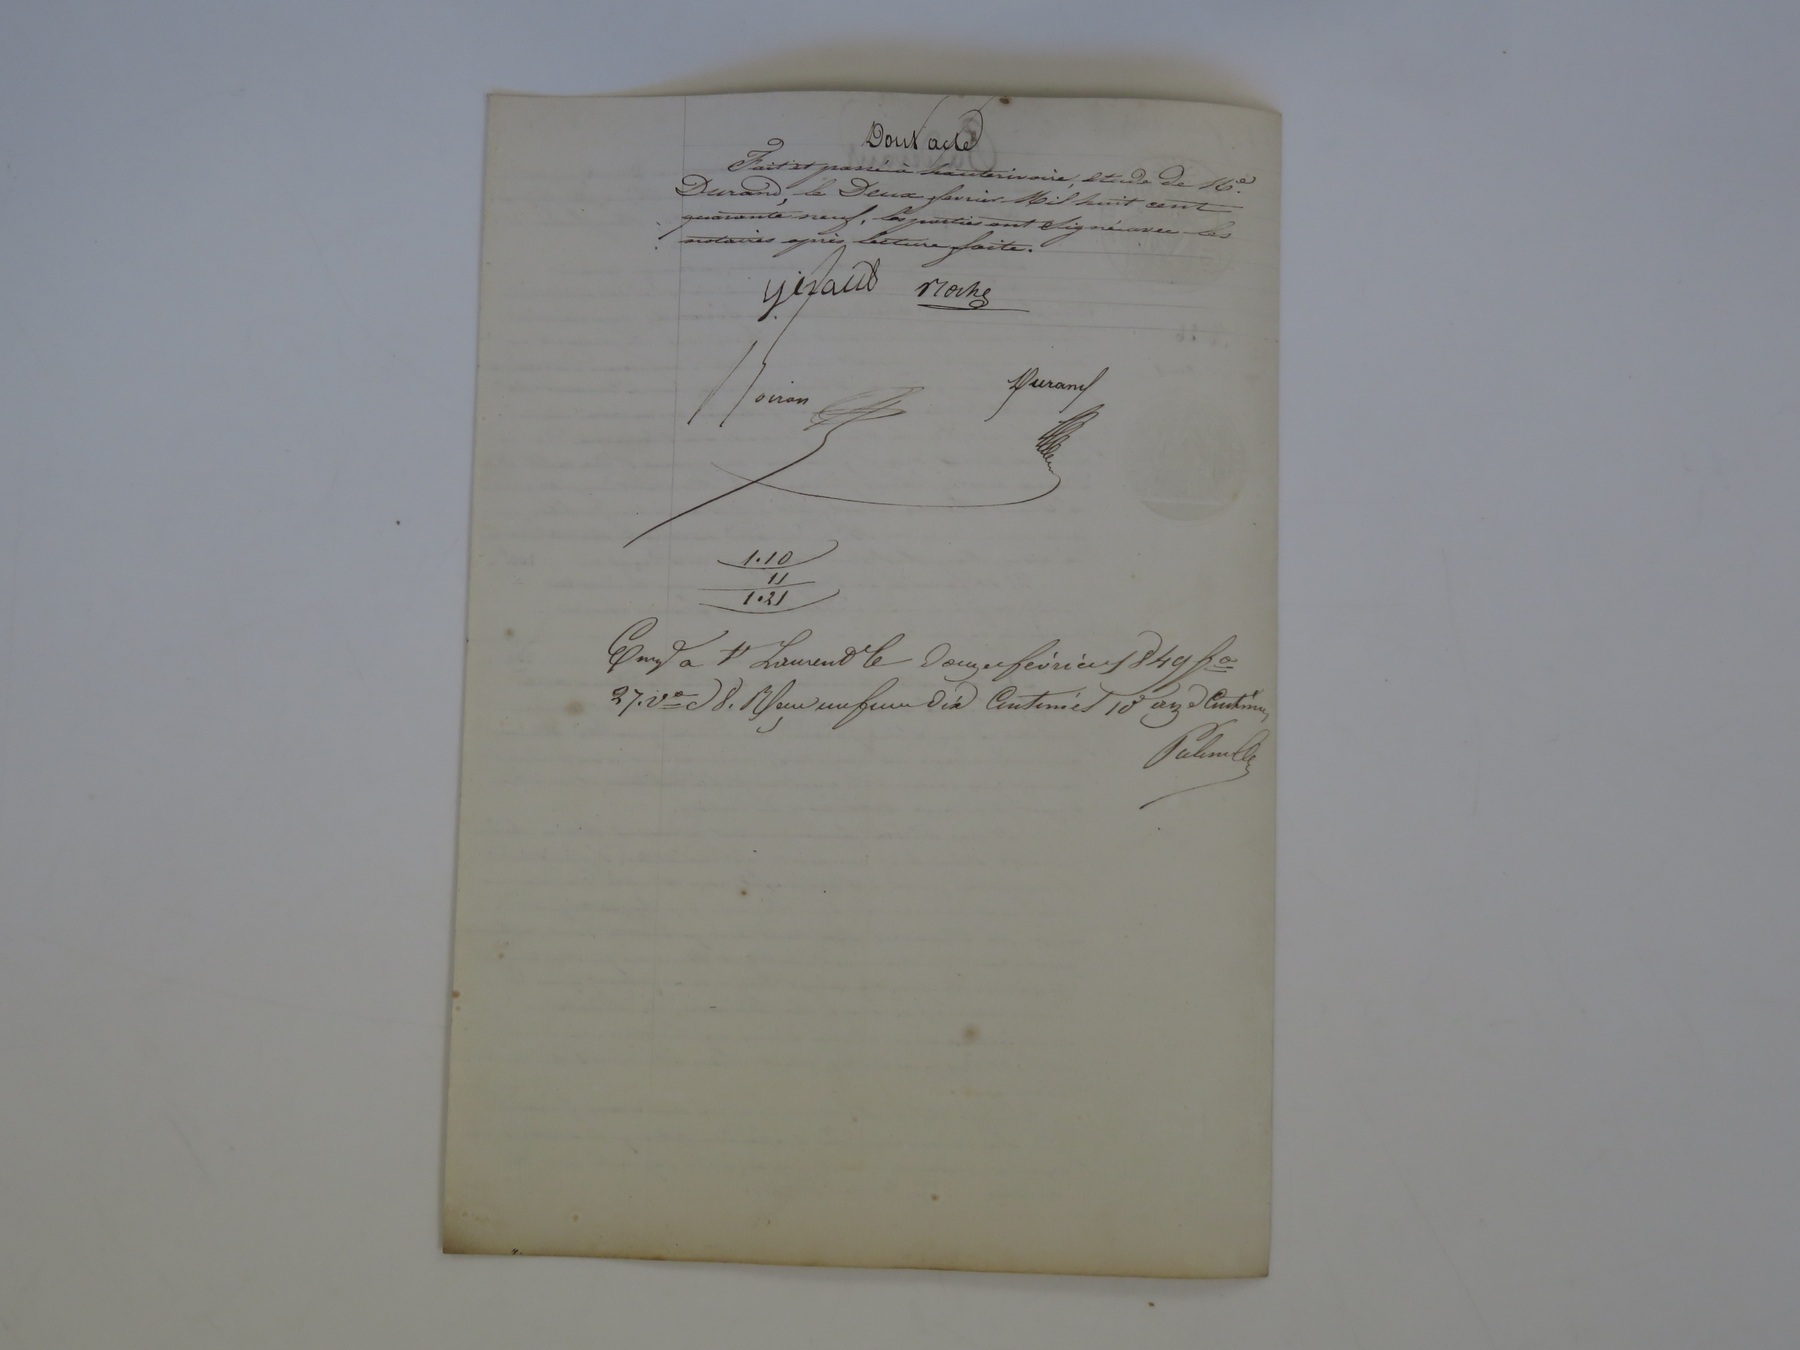 Dont acte
Fait et passé à hauterivoire, étude de Me.
Durand, le Deux février Mil huit cent
quarante neuf, les parties ont signé avec les
notaires après lecture faite.
Giraud Roche
Noiron Durand
1.10
11
1.21
Enregé a St Laurent le Douze février 1849 fo
27. vo c 8. Reçu un franc dix Centimes 10e onze Centimes